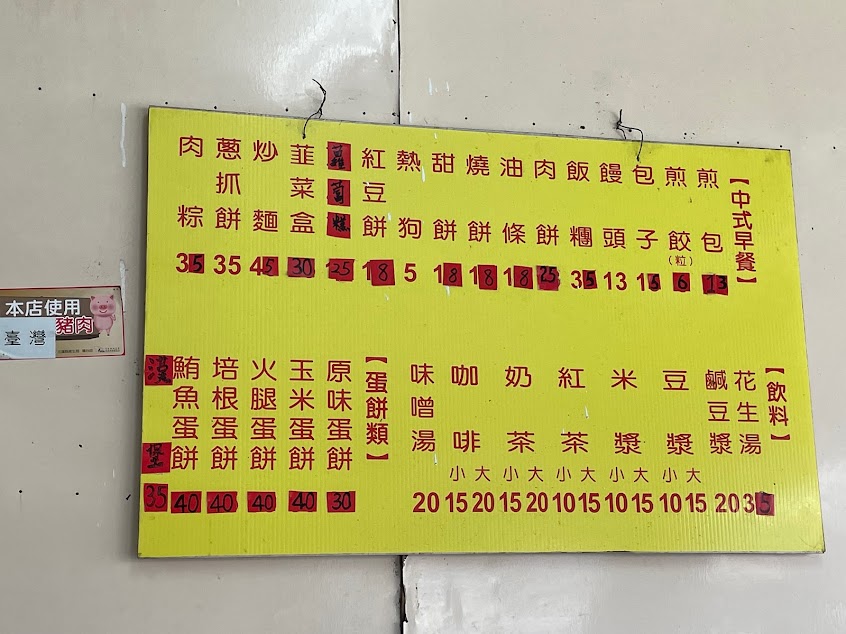 【中式早餐】
煎包 13
煎餃(粒) 6
包子 15
饅頭 13
飯糰 35
肉餅 25
油條 18
燒餅 18
甜餅 18
熱狗 5
紅豆餅 18
蘿蔔糕 25
韭菜盒 30
炒麵 45
蔥抓餅 35
肉粽 35
【飲料】
花生湯 35
鹹豆漿 20
豆漿 大15 小10
米漿 大15 小10
紅茶 大15 小10
奶茶 大20 小15
咖啡 大20 小15
味噌湯 20
【蛋餅類】
原味蛋餅 30
玉米蛋餅 40
火腿蛋餅 40
培根蛋餅 40
鮪魚蛋餅 40
漢堡 35
本店使用
臺灣豬肉